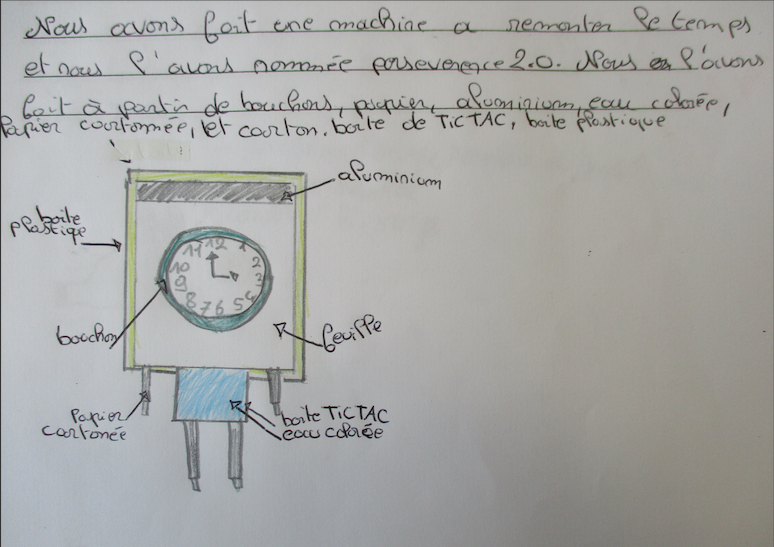 Nous avons fait une machine a remonter le temps
et nous l'avons nommée perseverence 2.0. Nous l'avons
fait à partir de bouchons, papier, aluminium, eau colorée,
Papier cartonnée, et carton. boite de TiCTAC, boite plastique
aluminium
boite
plastique
11 12 1
10 2
9 3
8 7 6 5 4
bouchon
feuille
Papier
cartonée
boite TiCTAC
eau colorée